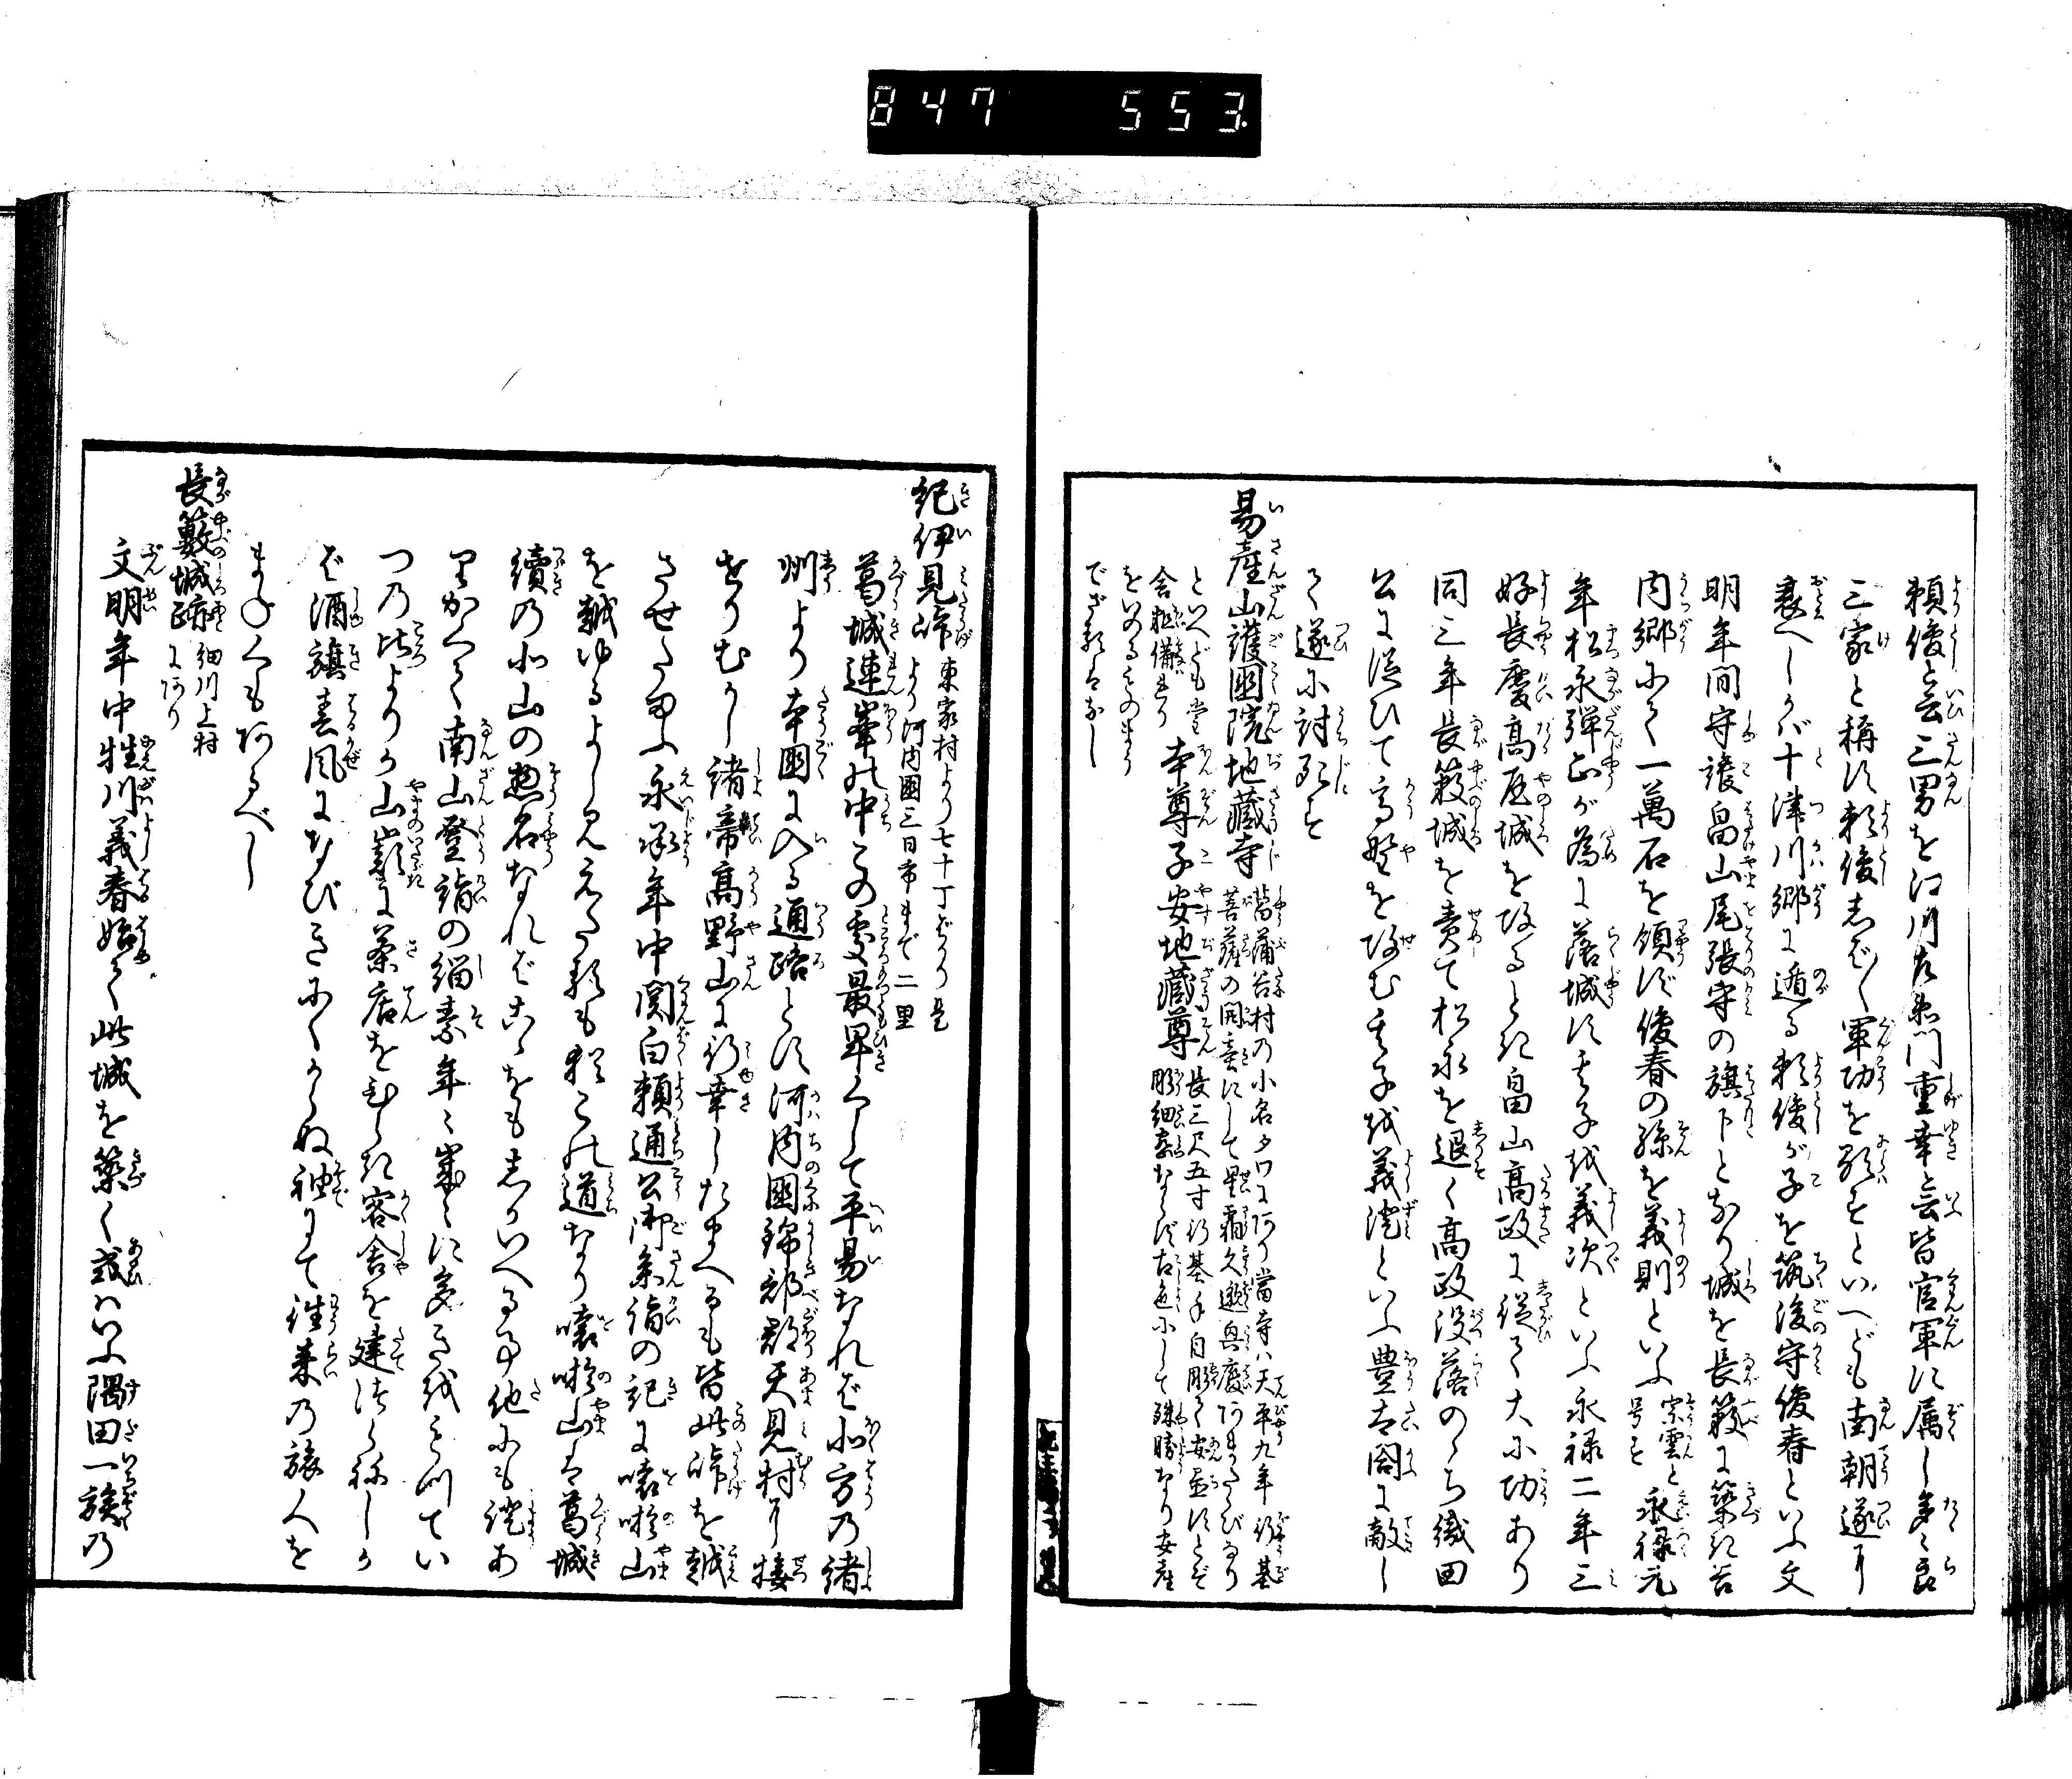 847 553
頼俊と云三男を江川左衛門重幸と云皆官軍に属し多々良
三家と稱す頼俊志ばく軍功を顕すといへども南朝遂に
衰へしかバ十津川郷に遁る頼俊が子を筑後守俊春といふ文
明年間守護畠山尾張守の旗下となり城を長籔に築き谷
内郷にて一萬石を領ず俊春の孫を義則といふ宗雲と号す永禄元
年松永弾正が為に落城す其子越義次といふ永禄二年三
好長慶高屋城を攻るとき畠山高政に従て大に功あり
同三年長籔城を責て松永を退く高政没落のゝち織田
公に従ひて高野を攻む其子越義澄といふ豊太閤に敵し
て遂に討死す
易産山護國院地藏寺 菖蒲谷村の小名夕ワにあり當寺ハ天平九年行基
菩薩の開基にして星霜久遠興廢あまたゝびなり
といへども堂
舎粗備れり
本尊子安地藏尊 長三尺五寸行基手自彫て安置すとぞ
彫細密ならず古色にして殊勝なり安産
をいのるもの
まうでざるはなし
紀伊見峠 東家村より七十丁ばかり是
より河内國三日市まで二里
葛城連峯の中この処最卑くして平易なれば北方の諸
州より本國に入る通路とす河内國錦部郡天見村に接
せりむかし諸帝高野山に行幸したまへるも皆此峠を越
させたまふ永承年中関白頼通公御参詣の記に嚬呻山
を越ゆるよし見えたるも猶この道なり嚬呻山は葛城
續の北山の惣名なればこゝをも志かいへる事他にも證あ
りかくて南山登詣の緇素年々歳々に多き越もていつ
の比よりか山巓に茶店をむしき客舎を建つらねしか
ば酒旗春風になびきにくからぬ袖にて往来の旅人を
まねくもあるべし
長籔城跡 細川上村
にあり
文明年中牲川義春始て此城を築く或ハいふ隅田一族の